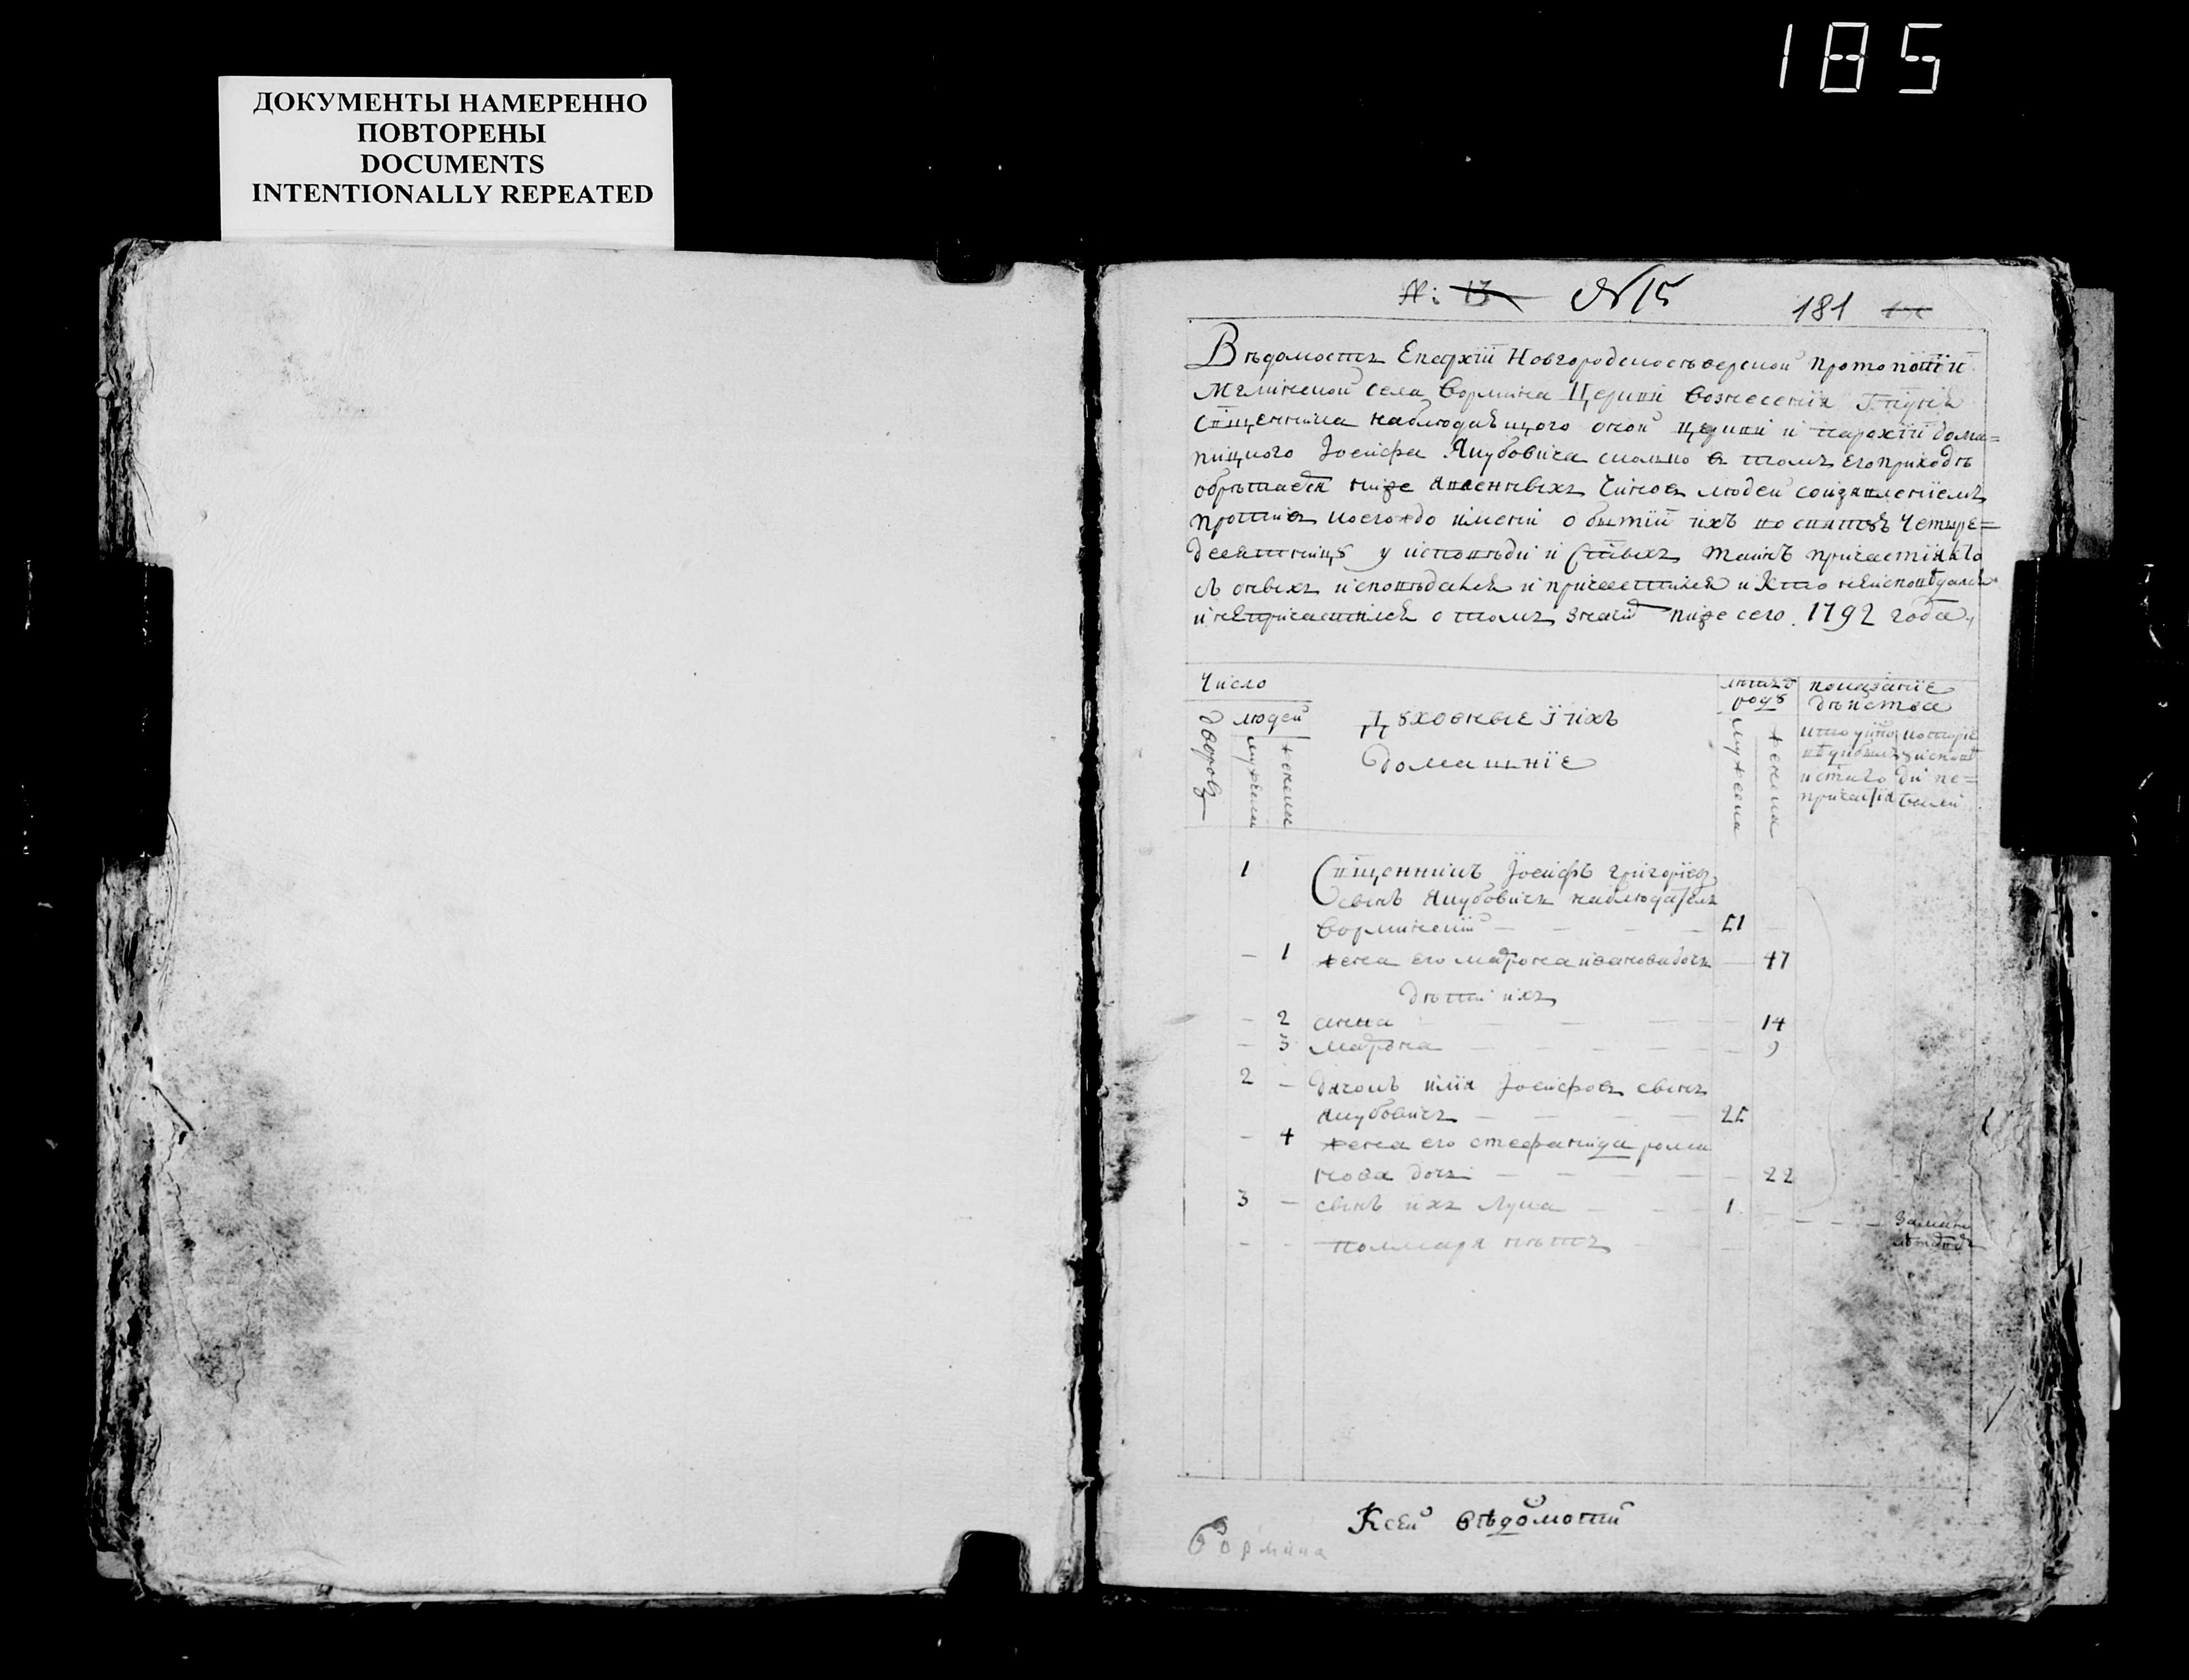 185
ДОКУМЕНТЫ НАМЕРЕННО
ПОВТОРЕНЫ
DOCUMENTS
INTENTIONALLY REPEATED
№: 13 №15 181
Вѣдомость Епархїи Новгородсѣверской протопопїи
Мглинской села Вормина Церкви Вознесенїя Гпдня
Сщенника наблюдающого оной церкви и парохїи
Іосифа Якубовича сколко в томъ его приходѣ
обрѣтается ниже явленныхъ чиновъ людей со изявленїемъ
противъ коегождо имени о бытїи ихъ во святую четыре=
десятницу у исповѣди и Стыхъ таинъ причастїя кто
съ оныхъ исповѣдался и причастился и кто неисповѣдался
и непричастился о томъ значит ниже сего. 1792 года,
Число
людей
дворовъ
мужески
женски
Духовные и ихъ
домашнїе
лѣтъ от
роду
мужеска
женска
показанїе
дѣйства
1 Сщенникъ Іосифъ григорїевъ
сынъ Якубовичъ наблюдатель
Ворминскїй 51
1 жена его матрона иванова дочь 47
дѣти ихъ
2 анна 14
3 матрона 9
2 дячокъ илїя Іосифовъ сынъ
якубовичъ 25
4 жена его стефанида рома
нова дочь 22
3 сынъ ихъ лука 1
за мало
лѣтством
поламаря нѣтъ
К сей вѣдомости
Вормина